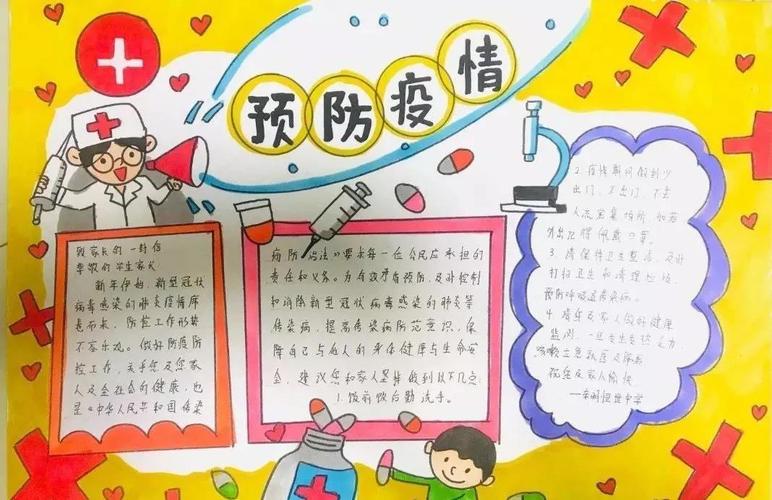 预防疫情
致家长的一封信
尊敬的学生家长
新年伊始，新型冠状
病毒感染的肺炎疫情席
卷而来，防控工作形势
不容乐观。做好防疫防
控工作，关乎您及您家
人及全社会的健康，也
是《中华人民共和国传染
病防治法》要求每一位公民应承担的
责任和义务。为有效预防，及时控制
和消除新型冠状病毒感染的肺炎等
传染病，提高传染病防范意识，保
障自己与他人的身体健康与生命安
全，建议您和家人坚持做到以下几点：
1.饭前饭后勤洗手。
2.疫情期间做到少
出门，不出门，不去
人流密集场所，如若
外出记得佩戴口罩。
3.请保持卫生整洁，及时
打扫卫生和清理垃圾，
预防呼吸道传染病。
4.请乐及家人做好健康
监测，一旦发生发热乏力
咳嗽立急就医
祝您及家人愉快